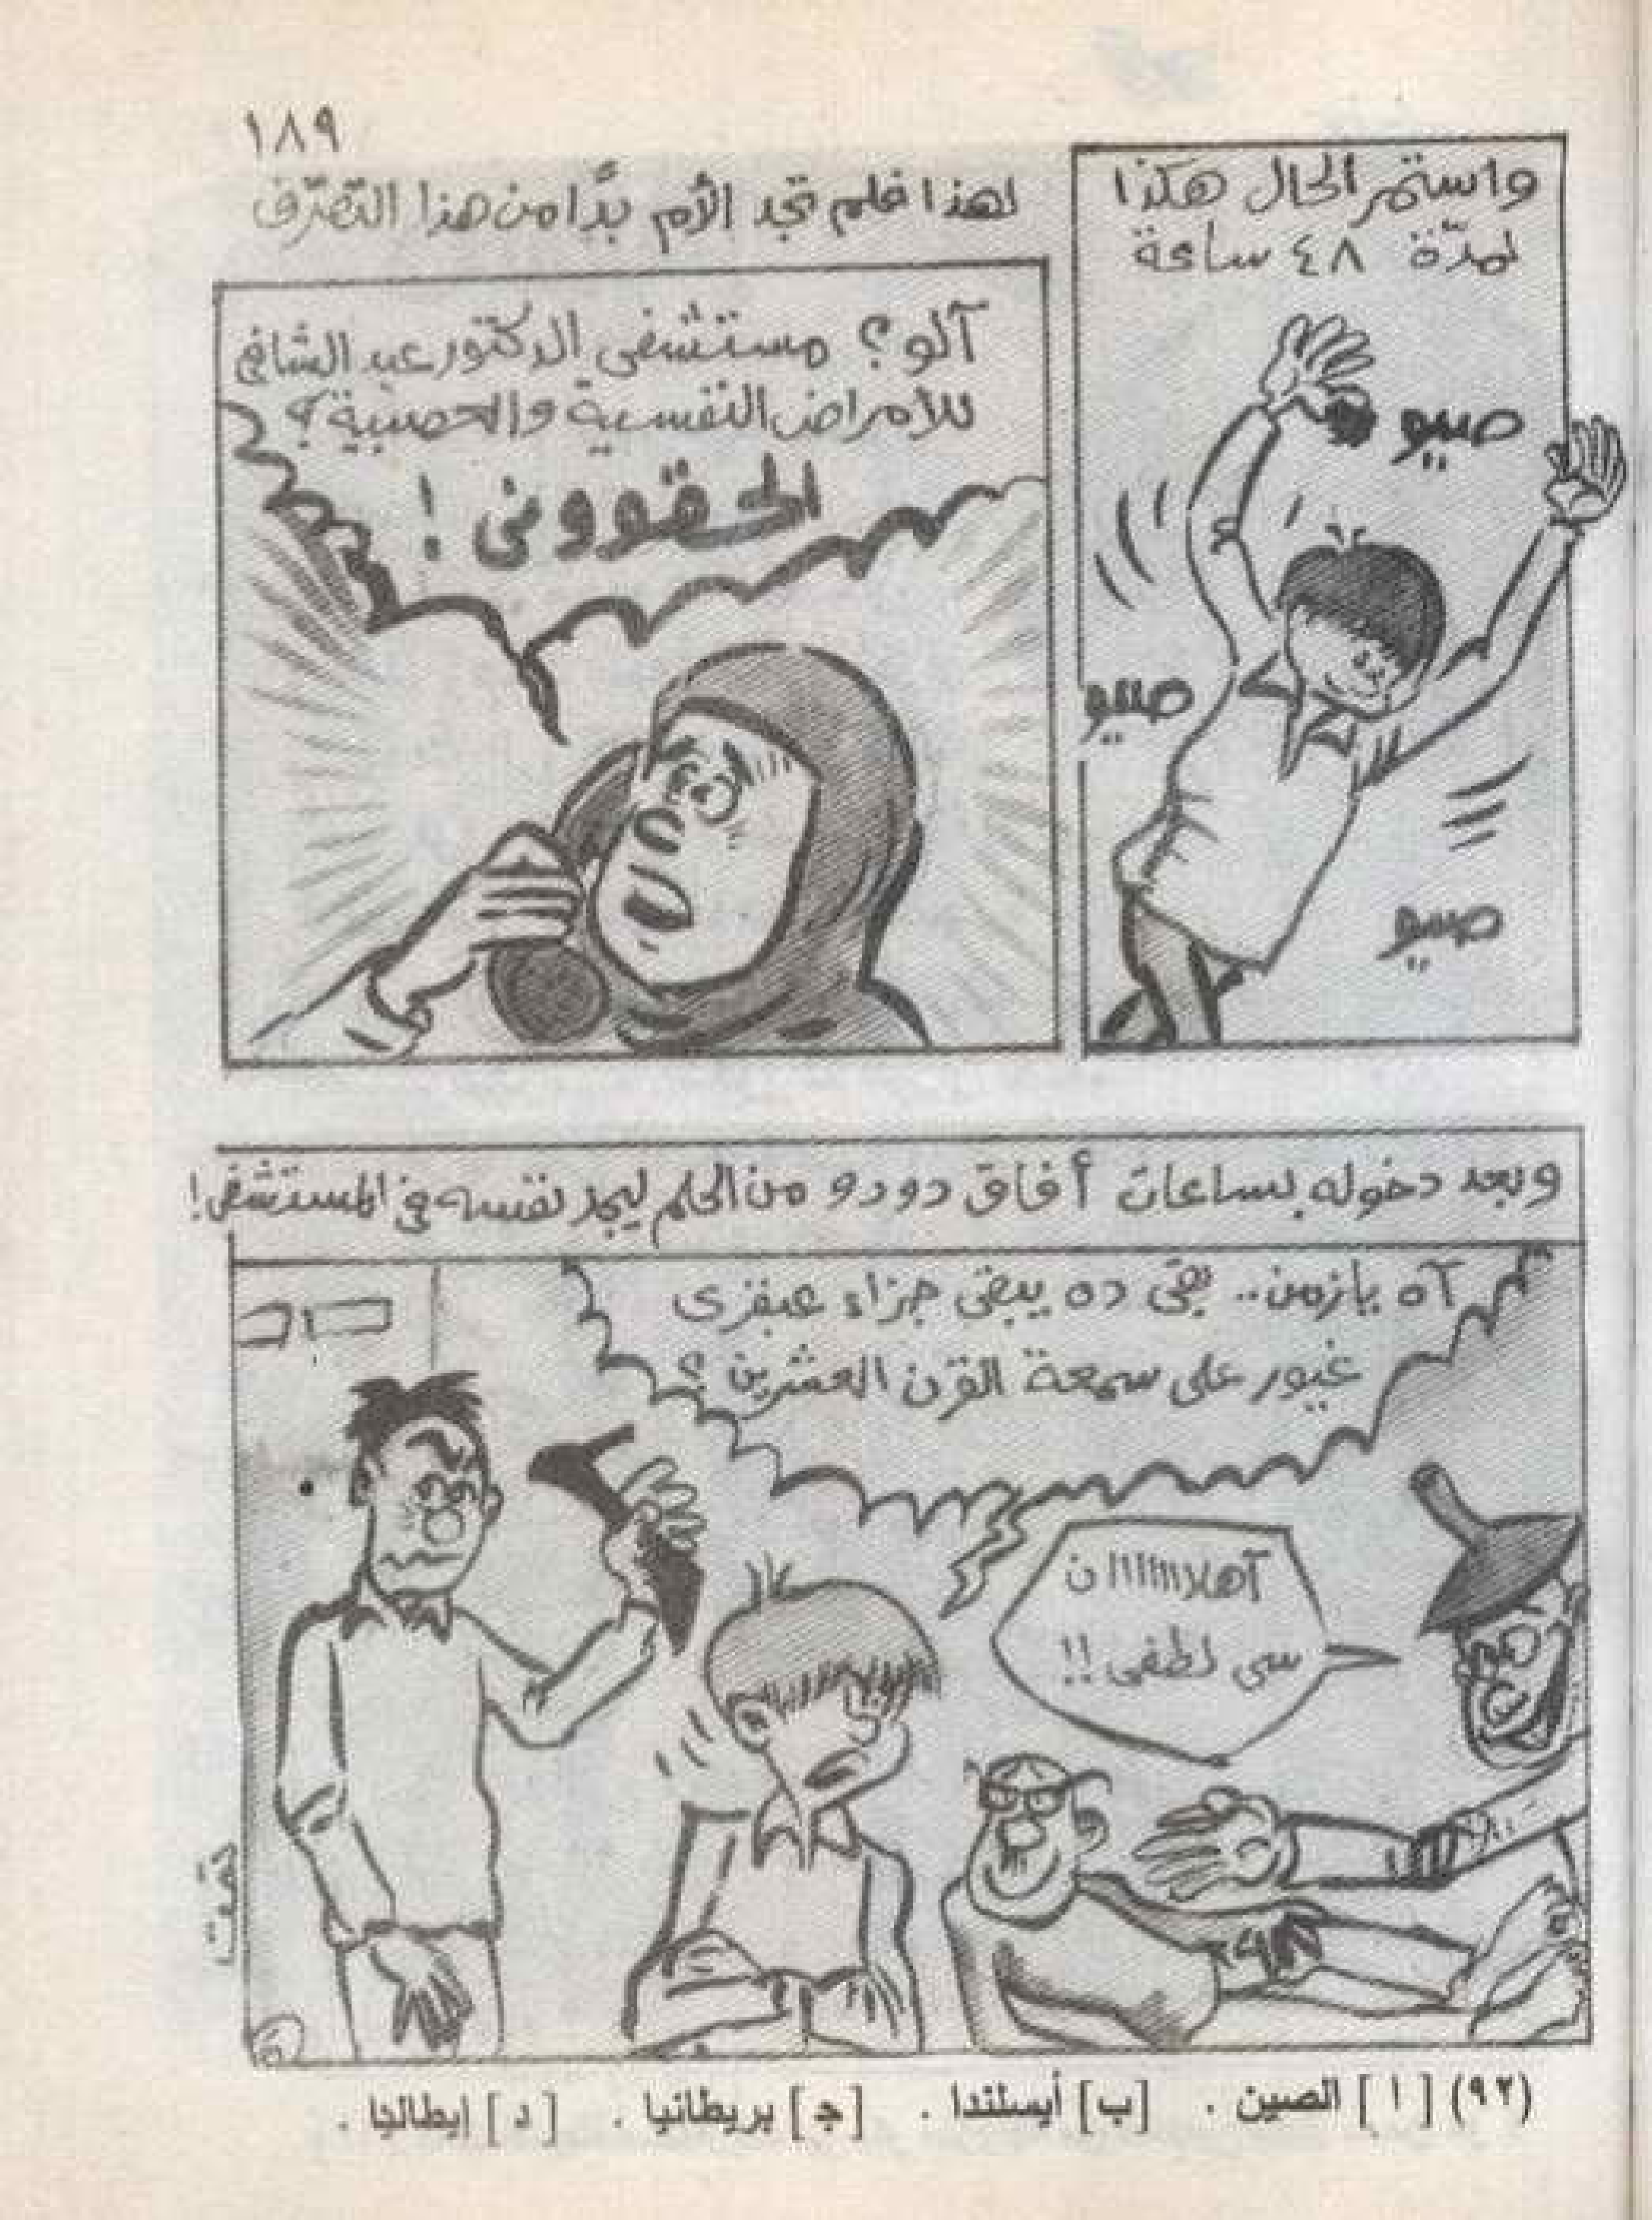 ١٨٩
واستمر الحال هكذا
لمدّة ٤٨ ساعة
صييو
صييو
صييو
لهذا فلم تجد الأم بدًّا من هذا التصرّف
آلو؟ مستشفى الدكتور عبد الشافى
للأمراض النفسية والعصبية؟
الحقوونى !
وبعد دخوله بساعات أفاق دودو من الحلم ليجد نفسه فى المستشفى!
آه يازمن.. بقى ده يبقى جزاء عبقرى
غيور على سمعة القرن العشرين؟
آهلااااااان
سى لطفى !!
تمت
(٩٢) [ ا ] الصين . [ب] أيسلندا . [ج] بريطانيا . [ د ] إيطاليا .